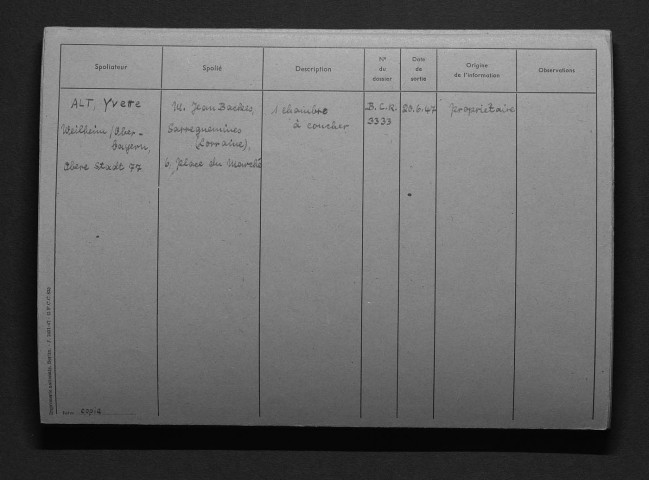 Spoliateur
Spolié
Description
N° du dossier
Date de sortie
Origine de l'information
Observations
ALT, Yvette
Weilheim/Ober-
bayern,
Obere Stadt 77
M. Jean Backes,
Sarreguemines
(Lorraine),
6, Place du Marché
1 chambre
à coucher
B.C.R.
3333
20.6.47
propriétaire
copie